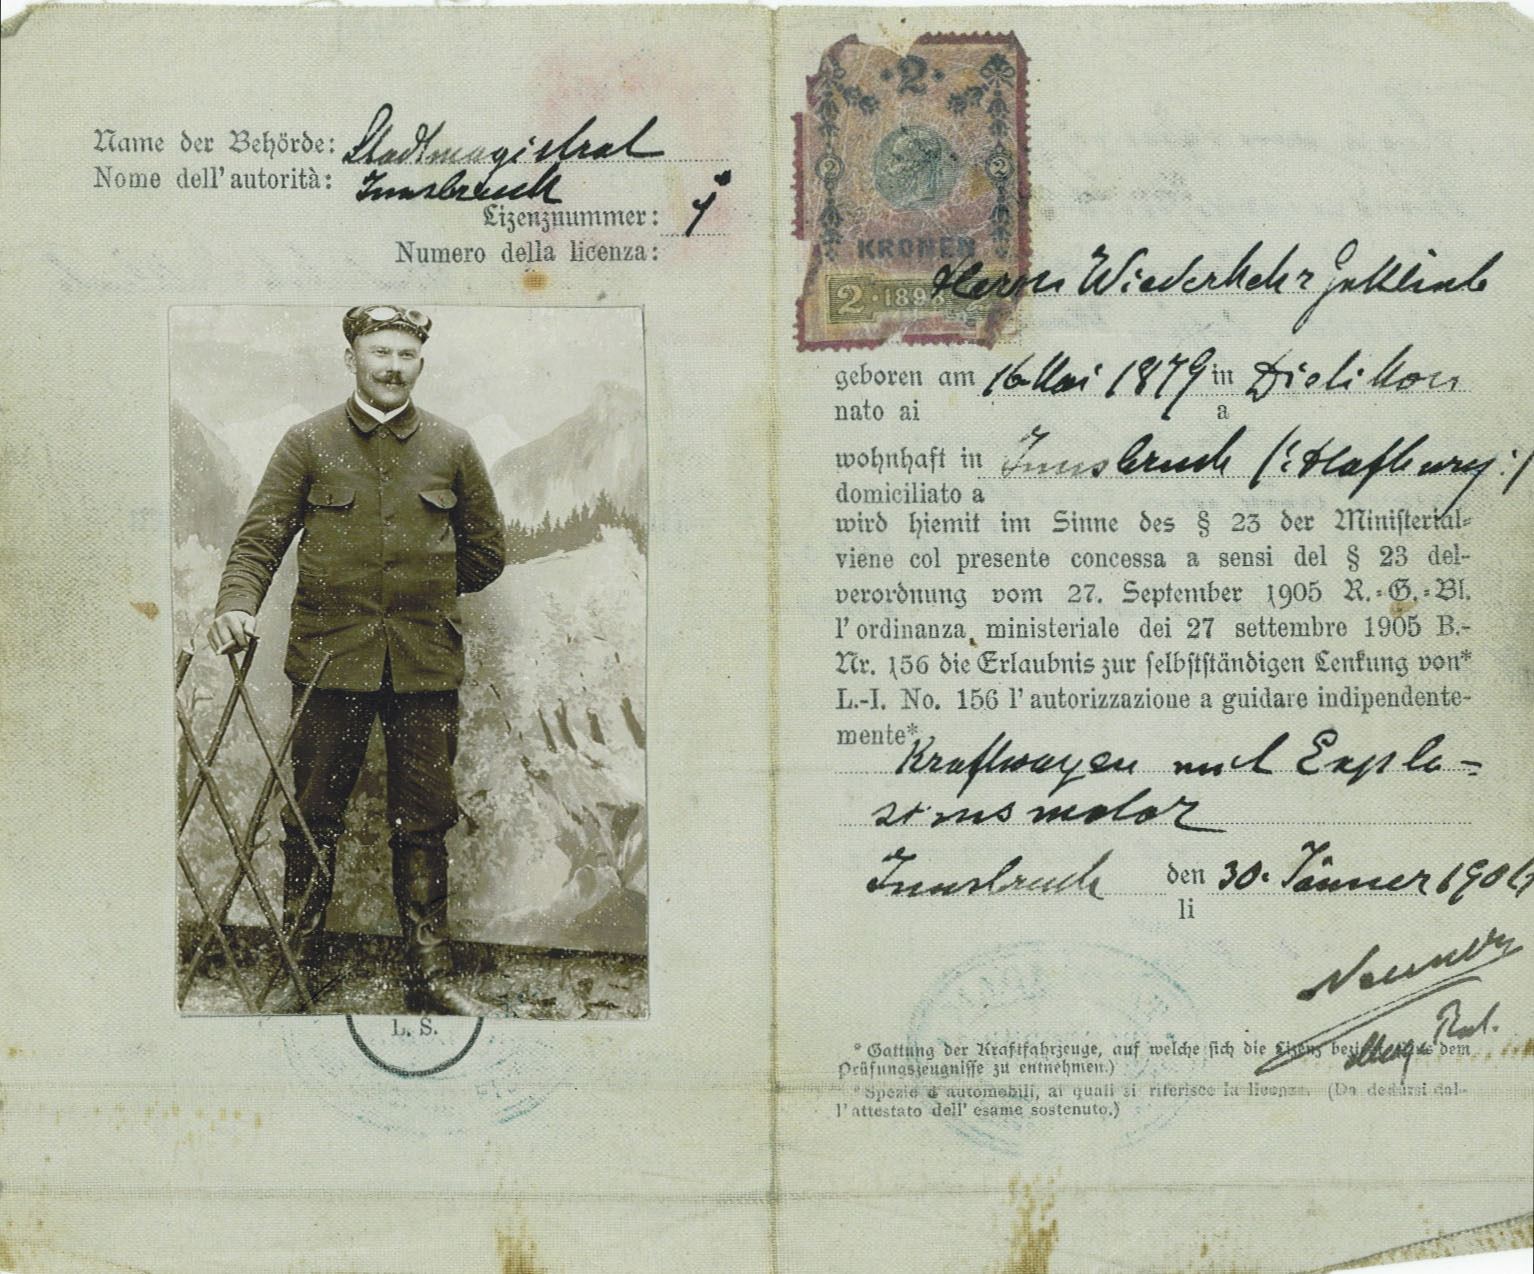 Name der Behörde: Stadtmagistrat
Nome dell'autorità: Innsbruck
Lizenznummer: 1
Numero della licenza:
L. S.
2
2 2
KRONEN
2 · 1898
Herrn Wiederkehr Gottlieb
geboren am 16 Mai 1879 in Dietikon
nato ai a
wohnhaft in Innsbruck (: Hofburg :)
domiciliato a
wird hiemit im Sinne des § 23 der Ministerial-
viene col presente concessa a sensi del § 23 del-
verordnung vom 27. September 1905 R.-G.-Bl.
l'ordinanza ministeriale dei 27 settembre 1905 B.-
Nr. 156 die Erlaubnis zur selbstständigen Lenkung von*
L.-I. No. 156 l'autorizzazione a guidare indipendente-
mente*
Kraftwagen mit Explo-
sionsmotor
Innsbruck den 30. Jänner 1906
li
* Gattung der Kraftfahrzeuge, auf welche sich die Lizenz dem
Prüfungszeugnisse zu entnehmen.)
* Spezie d'automobili, ai quali si riferisce la licenza. (Da dedursi dal-
l'attestato dell' esame sostenuto.)